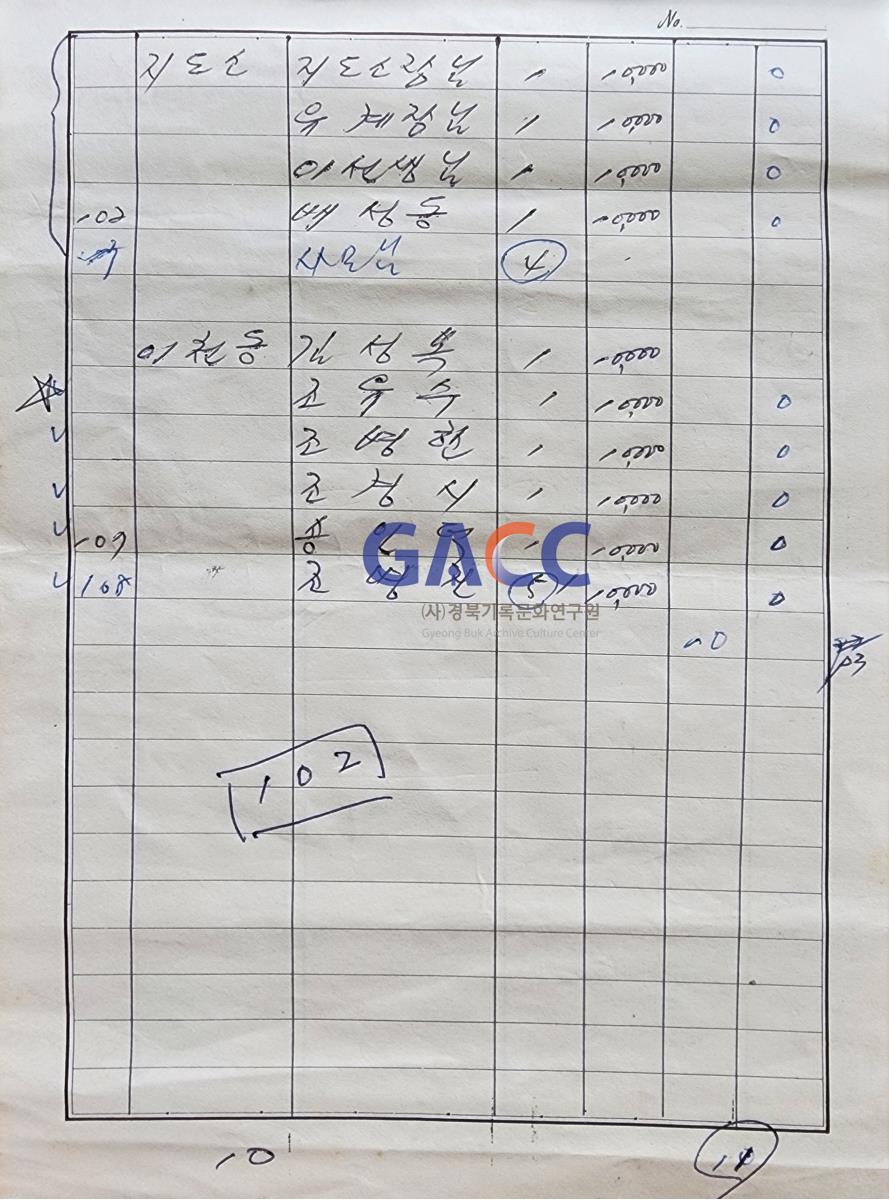 No.
지도소 지도소장님 1 10,000 0
유 계장님 1 10,000 0
이선생님 1 10,000 0
102 배성동 1 10,000 0
사모님 4
이천동 김성복 1 10,000
조유수 1 10,000 0
✓ 조병현 1 10,000 0
✓ 조청시 1 10,000 0
✓ 107 1 10,000 0
✓ 108 조 5 1 10,000 0
GACC
(사)경북기록문화연구원
Gyeong Buk Archive Culture Center
103
102
10